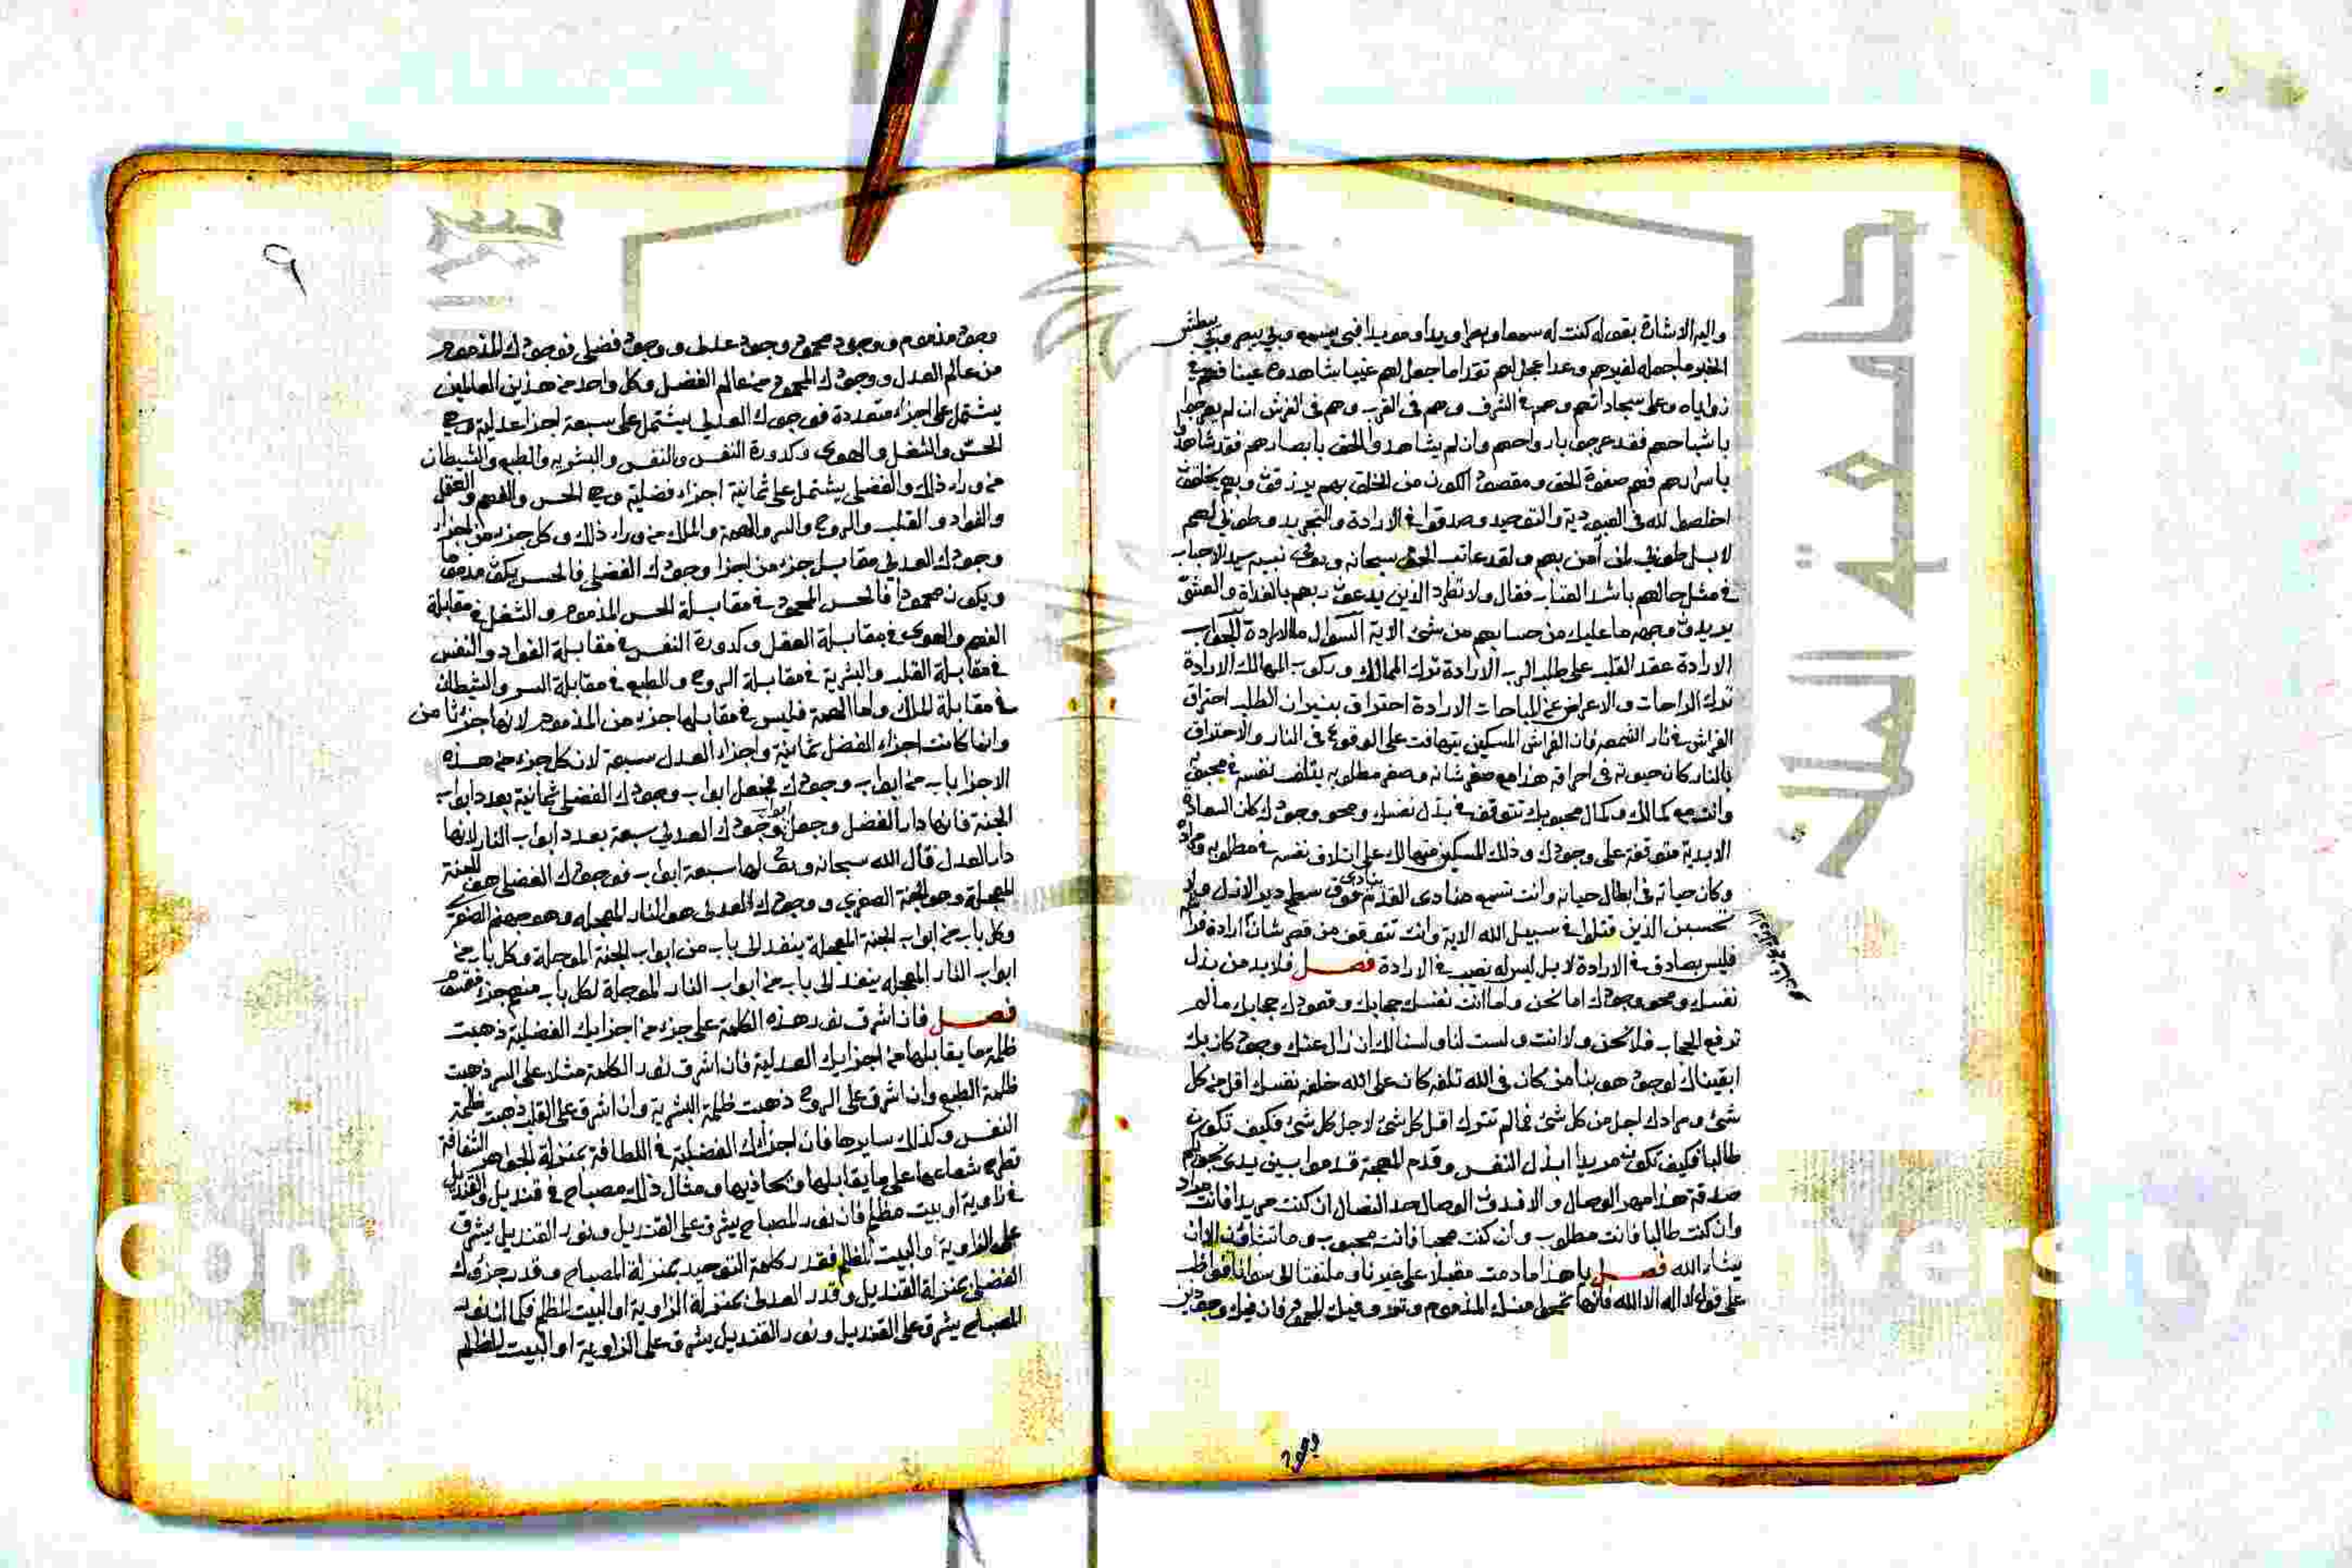 واليه الاشارة بقوله كنت له سمعا وبصرا ويدا ومويدا فبي يسمع وبي يبصر وبي يبطش
ما اجله لغيرهم وعدا عجل لهم نقدا ما جعل لهم غيبا شاهدوه عينا فهم في
زواياه وعلى سجاداتهم وهم في الشرق وهم في الغرب وهم في الفرش ان لم يعرجوا
باشباحهم فقد عرجوا بارواحهم وان لم يشاهدوا الحق بابصارهم فقد شاهدوا
باسرارهم فهم صفوة الحق ومقصود الكون من الخلق بهم يرزقون وبهم يخلقون
اخلصوا لله في العبودية والتوحيد وصدقوا في الارادة والتجريد وطوبى لهم
لا بل طوبى لمن آمن بهم ولقد عاتب الحق سبحانه وتعالى نبيه سيد الاحباب
في مثل حالهم باشد العتاب فقال ولا تطرد الذين يدعون ربهم بالغداة والعشي
يريدون وجهه ما عليك من حسابهم من شئ الاية السؤال ما الارادة الجواب
الارادة عقد القلب على طلب الرب الارادة ترك الممالك وركوب المهالك الارادة
ترك الراحات والاعراض عن المباحات الارادة احتراق بنيران الطلب احتراق
الفراش في نار الشمع فان الفراش المسكين يتهافت على الوقوع في النار والاحتراق
بالنار كان حيوته في احراقه هذا مع صغر شانه وصغر مطلوبه يتلف نفسه في محبوبه
وانت مع كمالك وكمال محبوبك تتوقف في بذل نفسك ومحو وجودك كان السعادة
الابدية متوقفة على وجودك وذلك المسكين متهالك على اتلاف نفسه في مطلوبه ومراده
وكان حياته في ابطال حياته وانت تسمع منادى القدم ينادى فوق سطح دير الازل ولا
تحسبن الذين قتلوا في سبيل الله الاية وانت تتوقف من قصر شان ارادة
فليس بصادق في الارادة لا بل ليس له نصيب في الارادة فصل فلا بد من بذل
نفسك ومحو وجودك اما نحن واما انت نفسك حجابك وقصودك حجابك ما لم
ترفع الحجاب فلا نحن ولا انت ولست لنا ولسنا لك ان زال عنك وجود كان بك
ابقيناك لوجود هو بنا من كان في الله تلفه كان على الله خلفه نفسك اقل من كل
شئ ومرادك اجل من كل شئ فما لم تترك اقل كل شئ لاجل كل شئ فكيف تكون
طالبا فكيف تكون مريدا ابذل النفس وقدم المهجة قدموا بين يدي نجواكم
صدقة هذا مهر الوصال والا فدون الوصال حد النصال ان كنت مريدا فانت مراد
وان كنت طالبا فانت مطلوب وان كنت محبا فانت محبوب وما تشاؤن الا ان
يشاء الله فصل يا هذا ما دمت مقبلا على غيرنا وملتفتا الى سوانا فواظب
على قول لا اله الا الله فانها تمحوا منك المذموم وتولد فيك المحمود فان فيك وجودين
وجود
٩
وجود مذموم ووجود محمود وجود عدلى ووجود فضلى فوجودك المذموم
من عالم العدل ووجودك المحمود من عالم الفضل وكل واحد من هذين العالمين
يشتمل على اجزاء متعددة فوجودك العدلي يشتمل على سبعة اجزاء عدلية وهي
الحس والشغل والهوى وكدورة النفس والنفس والبشرية والطبع والشيطان
من وراء ذلك والفضلي يشتمل على ثمانية اجزاء فضلية وهي الحس والفهم والعقل
والفواد والقلب والروح والسر والهمة والملك من وراء ذلك وكل جزء من اجزاء
وجودك العدلي مقابل جزء من اجزا وجودك الفضلي فالحس يكون مذموما
ويكون محمودا فالحس المحمود في مقابلة الحس المذموم والشغل في مقابلة
الفهم والهوى في مقابلة العقل وكدورة النفس في مقابلة الفواد والنفس
في مقابلة القلب والبشرية في مقابلة الروح والطبع في مقابلة السر والشيطان
في مقابلة الملك واما الهمة فليس في مقابلها جزء من المذموم لانها جزء ثامن
وانما كانت اجزاء الفضل ثمانية واجزاء العدل سبعة لان كل جزء من هذه
الاجزا باب من ابواب وجودك فجعل ابواب وجودك الفضلي ثمانية بعدد ابواب
الجنة فانها دار الفضل وجعل ابواب وجودك العدلي سبعة بعدد ابواب النار لانها
دار العدل قال الله سبحانه وتعالى لها سبعة ابواب فوجودك الفضلي هو الجنة
المعجلة وهو الجنة الصغرى ووجودك العدلي هو النار المعجله وهو جهنم الصغرى
وكل باب من ابواب الجنة المعجلة ينفد الى باب من ابواب الجنة الموجلة وكل باب من
ابواب النار المعجله ينفد الى باب من ابواب النار الموجلة لكل باب منهم جزء مقسوم
فصل فان اشرق نور هذه الكلمة على جزء من اجزايك الفضلية ذهبت
ظلمة ما يقابلها من اجزايك العدلية فان اشرق نور الكلمة مثلا على السر ذهبت
ظلمة الطبع وان اشرق على الروح ذهبت ظلمة البشرية وان اشرق على القلب ذهبت ظلمة
النفس وكذلك سايرها فان اجزائك الفضلية في اللطافة بمنزلة الجواهر الشفافة
تطرح شعاعها على ما يقابلها ويحاذيها ومثال ذلك مصباح في قنديل والقنديل
في زاوية او بيت مظلم فان نور المصباح يشرق على القنديل ونور القنديل يشرق
على الزاوية او البيت المظلم فقدر كلمة التوحيد بمنزلة المصباح وقدر جزؤك
الفضلي بمنزلة القنديل وقدر العدلي بمنزلة الزاوية او البيت المظلم فكما ان نور
المصباح يشرق على القنديل ونور القنديل يشرق على الزاوية او البيت المظلم